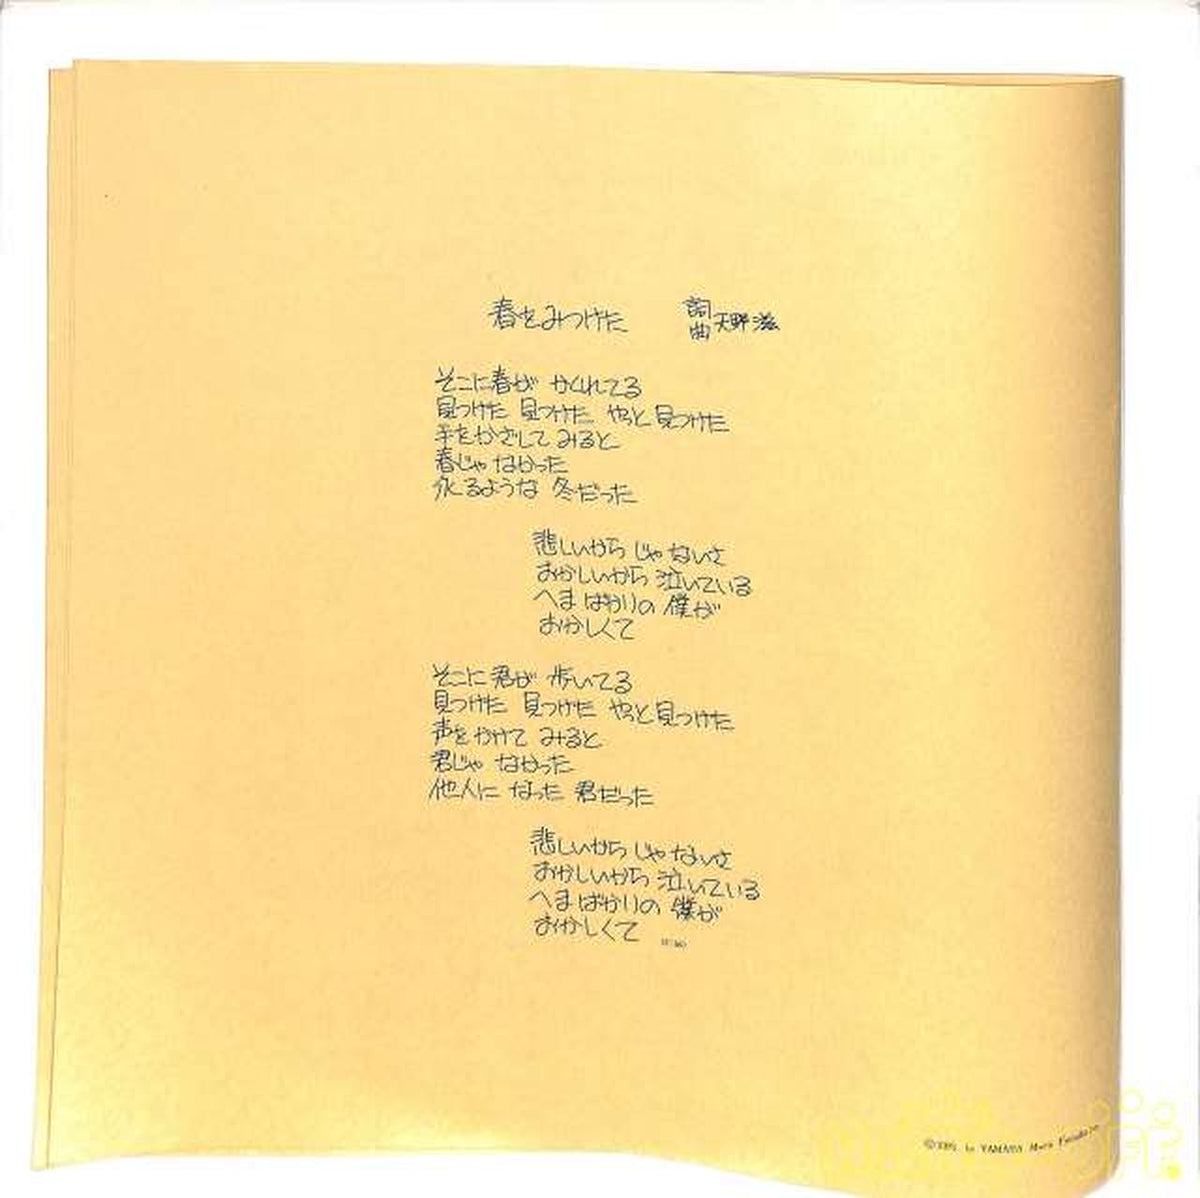 春をみつけた 詞曲 天野滋
そこに春が かくれてる
見つけた 見つけた やっと見つけた
手をかざして みると
春じゃ なかった
氷るような 冬だった
悲しいから じゃないさ
おかしいから 泣いている
へま ばかりの 僕が
おかしくて
そこに 君が 歩いてる
見つけた 見つけた やっと見つけた
声を かけて みると
君じゃ なかった
他人に なった 君だった
悲しいから じゃないさ
おかしいから 泣いている
へま ばかりの 僕が
おかしくて
by YAMAHA Music Foundation